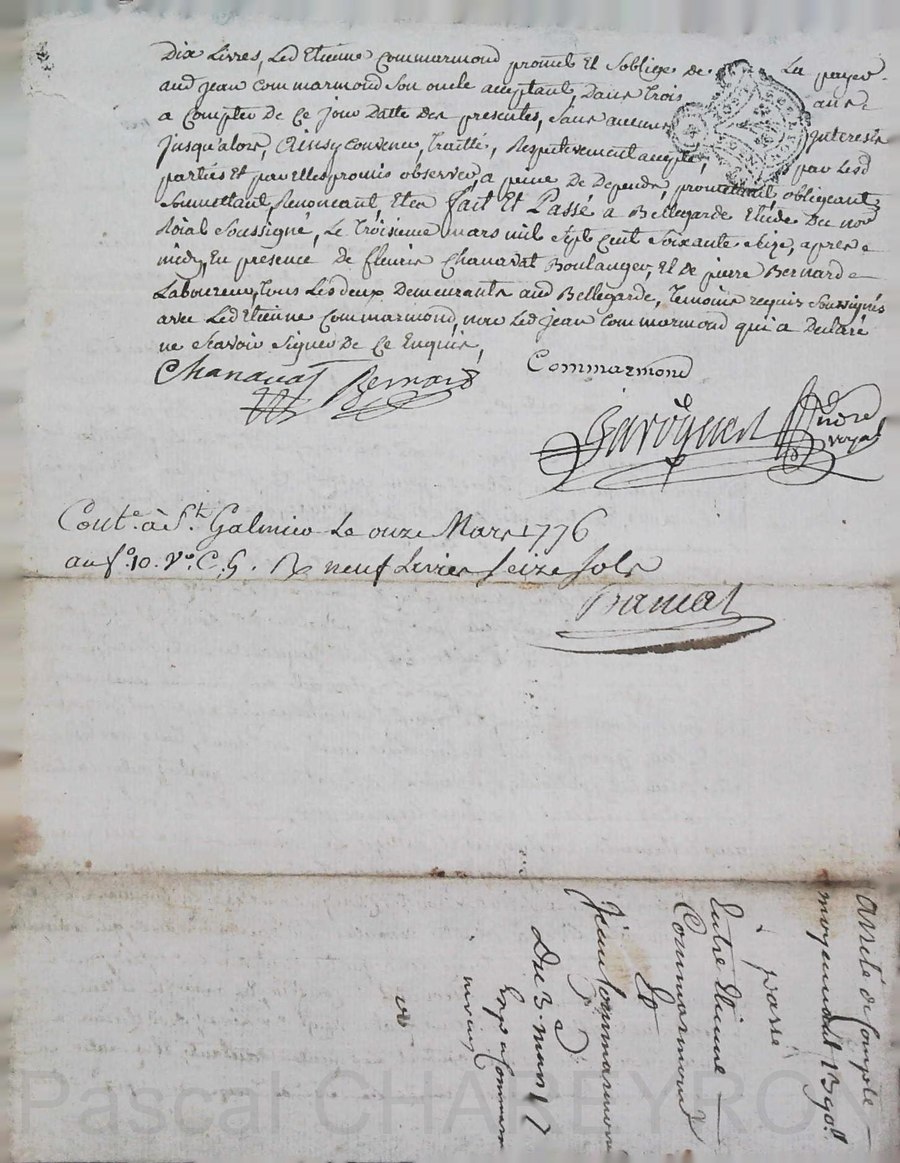 Dix Livres, Led Etienne Commarmond promet Et Soblige de La payer
aud jean Commarmond Son oncle aceptant, Dans Trois ans
a Compter de Ce jour Datte des presentes, Sans aucuns Interests
Jusqu'alors, Ainsy Convenu, Traitté, Respectivement accepté, par Lesd
parties Et par elles promis observer, a peine De Depends, promettant, obligeant
Soumettant, Renoncant, Etca Fait Et Passé a Bellegarde Etude Du nore
Roial Soussigné, Le Troisieme mars mil Sept Cent Soixante Seize, apres
midy, En presence De fleuris Chanavat Boulanger, Et de pierre Bernard
Laboureur, Tous Lesdeux Demeurants aud Bellegarde, Temoins requis Soussignés
avec Led Etienne Commarmond, non Led jean Commarmond qui a Declaré
ne Scavoir Signer De Ce Enquis,
Chanavat Bernard Commarmond
royal
Cont.e à S.t Galmier Le onze Mars 1776
au f.o 10. V.o C. G. R neuf Livres Seize Sols
arreté de Compte
moyennant
passé
Entre Etienne
Commarmond
Et
Jean Commarmond
Du 3. mars 17
Pascal CHAREYRON